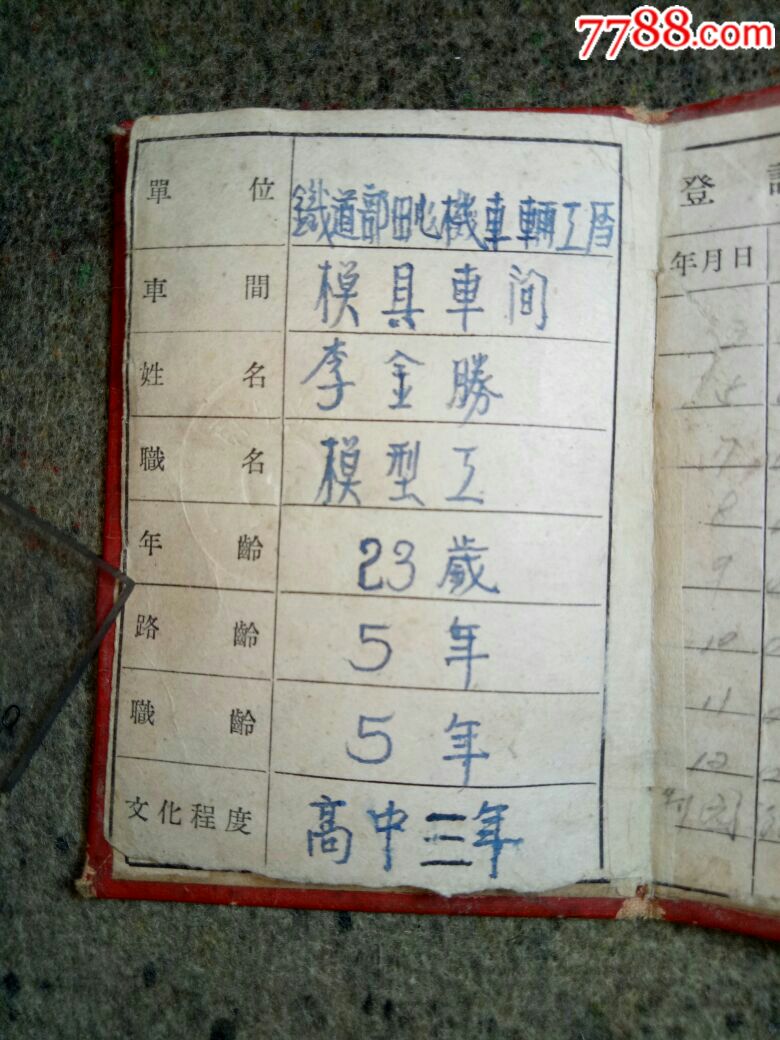 7788.com
單位 鐵道部田心機車車輛工厝
車間 模具車间
姓名 李金勝
職名 模型工
年齡 23歲
路齡 5年
職齡 5年
文化程度 高中三年
登
年月日
7
8
9
10
11
12